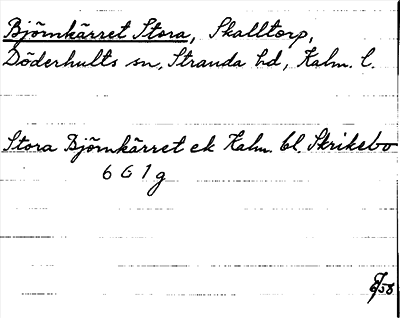 Björnkärret Stora, Skalltorp,
Döderhults sn, Stranda hd, Kalm. l.
Stora Björnkärret ek Kalm. bl. Skrikebo
6 G 1 g